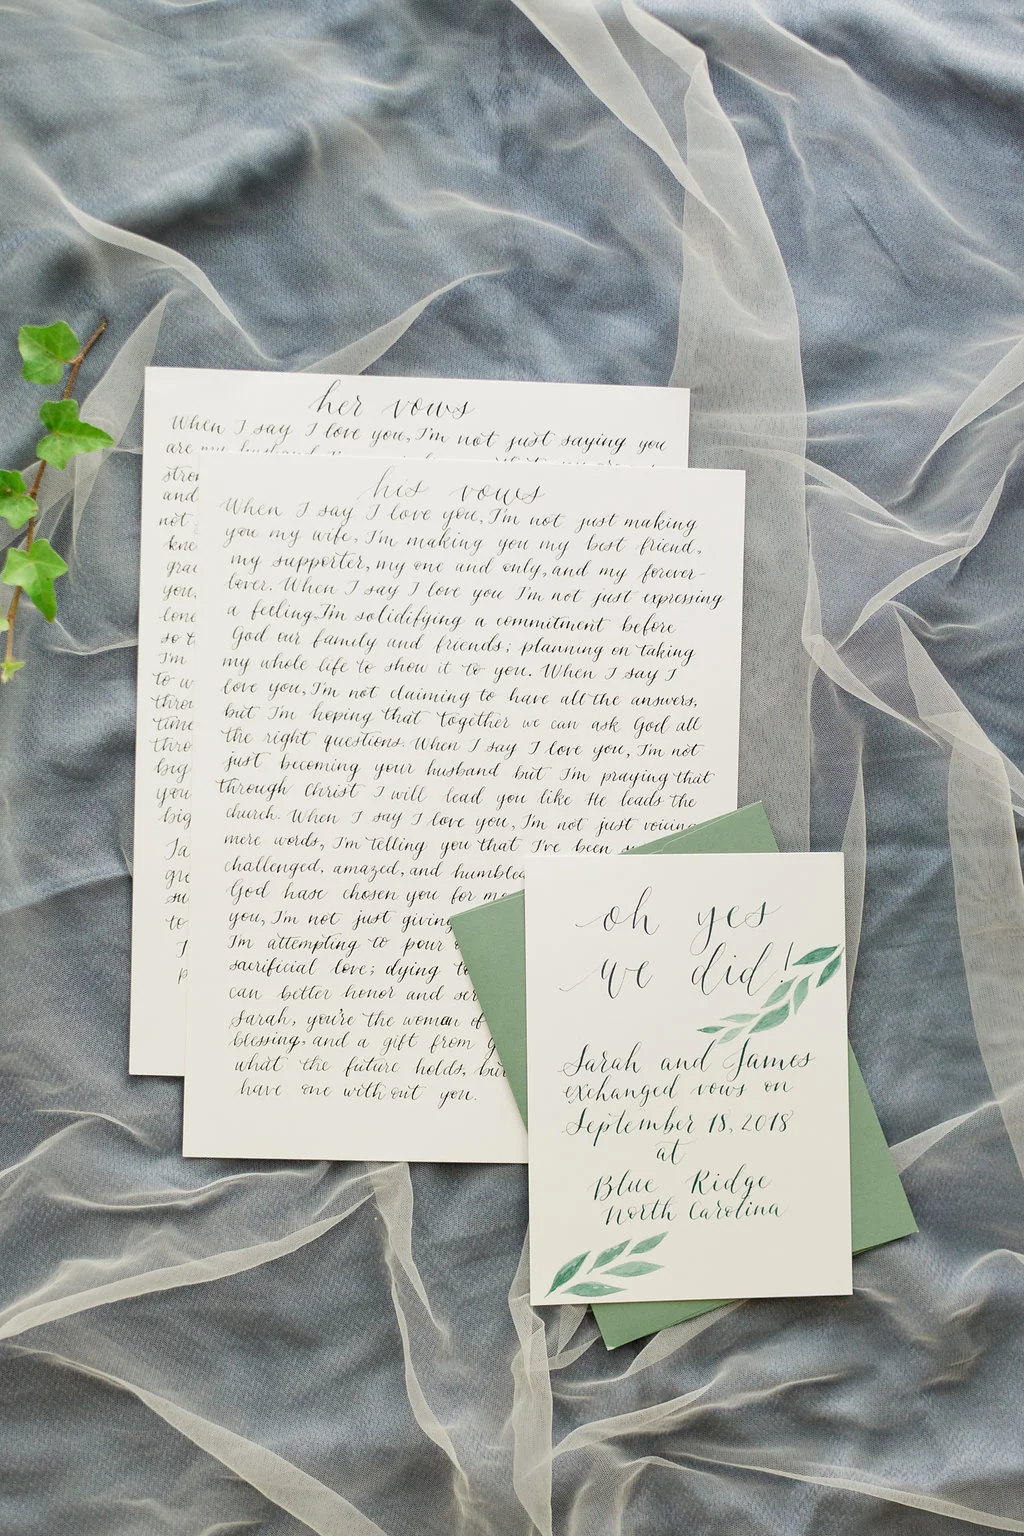 her vows
When I say I love you, I'm not just saying you
are my husband
and
not
you,
love
I'm
to w
time
big
you
big
Ja
to
his vows
When I say I love you, I'm not just making
you my wife, I'm making you my best friend,
my supporter, my one and only, and my forever-
lover. When I say I love you I'm not just expressing
a feeling, I'm solidifying a commitment before
God our family and friends; planning on taking
my whole life to show it to you. When I say I
love you, I'm not claiming to have all the answers,
but I'm hoping that together we can ask God all
the right questions. When I say I love you, I'm not
just becoming your husband but I'm praying that
through Christ I will lead you like He leads the
church. When I say I love you, I'm not just voicing
mere words, I'm telling you that I've been
challenged, amazed, and humbled
God have chosen you for me
you, I'm not just giving
I'm attempting to pour
sacrificial love; dying to
can better honor and ser
Sarah, you're the woman of
blessing, and a gift from G
what the future holds, but
have one with out you.
oh yes
we did!
Sarah and James
exchanged vows on
September 18, 2018
at
Blue Ridge
North Carolina